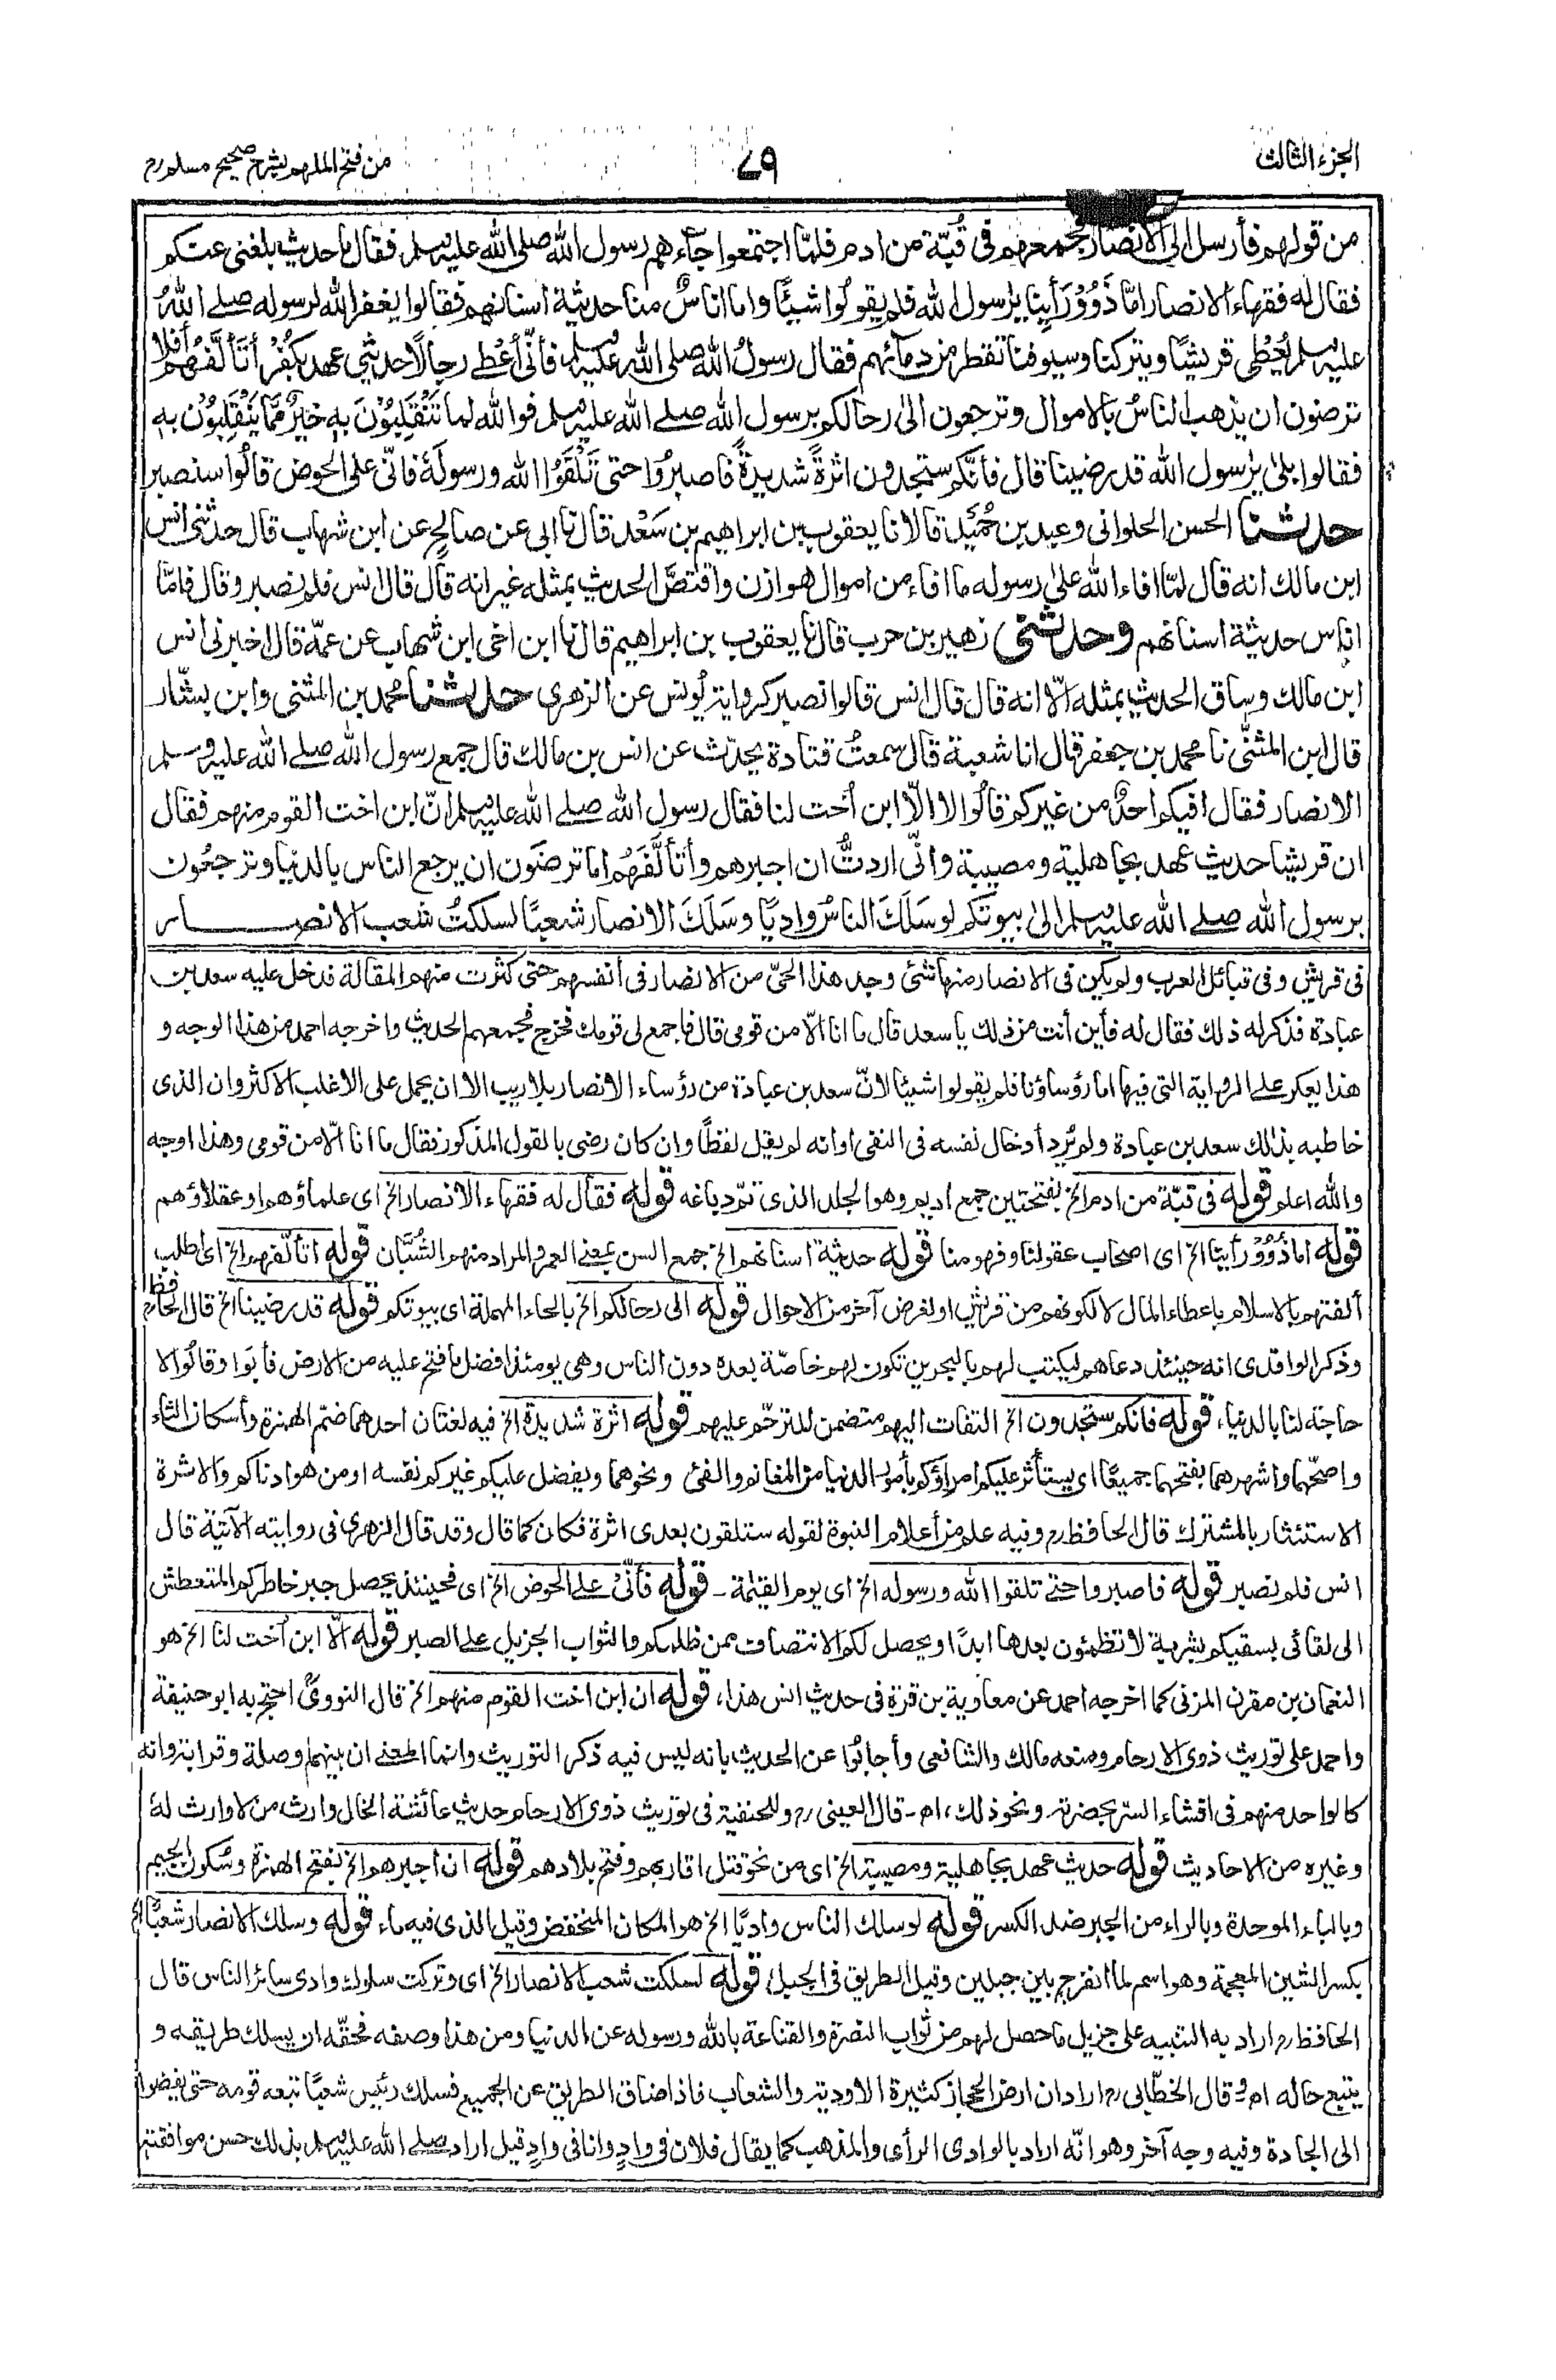 الجزء الثالث
٧٩
من فتح الملهم بشرح صحيح مسلم رح
من قولهم فأرسل الى الانصار فجمعهم فى قُبّة من ادم فلمّا اجتمعوا جاءهم رسول الله صلى الله عليه وسلم فقال ما حديث بلغنى عنكم
فقال له فقهاء الانصار امّا ذَوُوْ رَأيِنا يا رسول الله فلم يقولُوا شيئًا واما اناسٌ منا حديثة اسنانهم فقالوا يغفر الله لرسوله صلے اللهُ
عليه وسلم يُعْطِى قريشًا ويتركنا وسيوفنا تقطر من دمائهم فقال رسولُ الله صلى الله عليه وسلم فأنّى أعْطى رجالًا حديثى عهد بكُفْر أتَألَّفُهُم أفلا
ترضون ان يذهب الناسُ بالاموال وترجعون الىٰ رحالكم برسول الله صلے الله عليه وسلم فوالله لما تَنْقَلِبُوْنَ بهٖ خيرٌ ممَّا يَنْقَلِبُوْنَ بهٖ
فقالوا بلىٰ يا رسول الله قد رضينا قال فأنّكم ستجدون اثرةً شديدةً فاصبرُوا حتى تَلْقَوُا الله ورسولَهٗ فانّى على الحوض قالُوا سنصبر
حدثنا الحسن الحلوانى وعبد بن حُمَيْد قالا نا يعقوب بن ابراهيم بن سَعْد قال نا ابى عن صالح عن ابن شهاب قال حدثنى انس
ابن مالك انه قال لمّا افاء الله علىٰ رسوله ما افاء من اموال هوازن واقتصَّ الحديث بمثله غير انه قال قال انس فلم نصبر وقال فامّا
اناس حديثة اسنانهم وحدثنى زهير بن حرب قال نا يعقوب بن ابراهيم قال نا ابن اخى ابن شهاب عن عمّه قال اخبرنى انس
ابن مالك وساق الحديث بمثله الّا انه قال قال انس قالوا نصبر كرواية يُونس عن الزهرى حدثنا محمد بن المثنى وابن بشّار
قال ابن المثنّى نا محمد بن جعفر قال انا شعبة قال سمعتُ قتادة يحدّث عن انس بن مالك قال جمع رسول الله صلے الله عليه وسلم
الانصار فقال افيكم احدٌ من غيركم قالُوا لا الّا ابن أخت لنا فقال رسول الله صلے الله عليه وسلم انّ ابن اخت القوم منهم فقال
ان قريشا حديث عهد بجاهلية ومصيبة وانّى اردتُّ ان اجبرهم وأتألَّفَهُم اما ترضَون ان يرجع الناس بالدنيا وترجعُون
برسول الله صلے الله عليه وسلم الىٰ بيوتكم لو سَلَكَ الناسُ واديًا وسَلَكَ الانصار شعبًا لسلكتُ شعب الانصـــــار
فى قريش وفى قبائل العرب ولم يكن فى الانصار منها شئ وجد هذا الحىّ من الانصار فى أنفسهم حتى كثرت منهم المقالة فدخل عليه سعد بن
عبادة فذكر له ذلك فقال له فأين أنت من ذلك يا سعد قال ما انا الّا من قومى قال فاجمع لى قومك فخرج فجمعهم الحديث واخرجه احمد من هذا الوجه و
هذا يعكر على الرواية التى فيها اما رؤساؤنا فلم يقولوا شيئا لانّ سعد بن عبادة من رؤساء الانصار بلا ريب الا ان يحمل على الاغلب الاكثر وان الذى
خاطبه بذلك سعد بن عبادة ولم يُرِد أدخال نفسه فى النفى او انه لم يقل لفظًا وان كان رضى بالقول المذكور فقال ما انا الّا من قومى وهذا اوجه
والله اعلم قوله فى قبّة من ادم الخ بفتحتين جمع اديم وهو الجلد الذى تمّ دباغه قوله فقال له فقهاء الانصار الخ اى علماؤهم او عقلاؤهم
قوله اما ذَوُوْ رَأينا الخ اى اصحاب عقولنا وفهومنا قوله حديثة اسنانهم الخ جمع السن بمعنى العمر والمراد منهم الشُّبَّان قوله اتألّفهم الخ اى اطلب
ألفتهم بالاسلام باعطاء المال لا لكونهم من قريش او لغرض آخر من الاحوال قوله الى رحالكم الخ بالحاء المهملة اى بيوتكم قوله قد رضينا الخ قال الحافظ رح
وذكر الواقدى انه حينئذ دعاهم ليكتب لهم بالبحرين تكون لهم خاصّة بعده دون الناس وهى يومئذ افضل ما فتح عليه من الارض فأبَوا وقالُوا لا
حاجة لنا بالدنيا، قوله فانكم ستجدون الخ التفات اليهم متضمن للترحّم عليهم قوله اثرة شديدة الخ فيه لغتان احدهما ضمّ الهمزة وأسكان الثاء
واصحّها واشهرهما بفتحهما جميعًا اى يستأثر عليكم امراؤكم بأمور الدنيا من المغانم والفئ ونحوهما ويفضل عليكم غيركم نفسه او من هو ادناكم والاثرة
الاستئثار بالمشترك قال الحافظ رح وفيه علم من أعلام النبوة لقوله ستلقون بعدى اثرة فكان كما قال وقد قال الزهرى فى روايته الآتية قال
انس فلم نصبر قوله فاصبروا حتے تلقوا الله ورسوله الخ اى يوم القيٰمة ـ قوله فأنّى على الحوض الخ اى فحينئذ يحصل جبر خاطركم المتعطش
الى لقائى بسقيكم بشربة لا تظمئون بعدها ابدًا ويحصل لكم الانتصاف ممن ظلمكم والثواب الجزيل على الصبر قوله الّا ابن أخت لنا الخ هو
النعمان بن مقرن المزنى كما اخرجه احمد عن معاوية بن قرة فى حديث انس هذا، قوله ان ابن اخت القوم منهم الخ قال النووىّ احتج به ابو حنيفة
واحمد على توريث ذوى الارحام ومنعه مالك والشافعى وأجابُوا عن الحديث بانه ليس فيه ذكر التوريث وانما المعنے ان بينهما وصلة وقرابة وانه
كالواحد منهم فى افشاء السرّ بحضرته ونحو ذلك، اھ ـ قال العينى رح وللحنفية فى توريث ذوى الارحام حديث عائشة الخال وارث من لا وارث لهٗ
وغيره من الاحاديث قوله حديث عهد بجاهلية ومصيبة الخ اى من نحو قتل اقاربهم وفتح بلادهم قوله ان اجبرهم الخ بفتح الهمزة وسُكون الجيم
وبالباء الموحدة وبالراء من الجبر ضد الكسر قوله لو سلك الناس واديًا الخ هو المكان المنخفض وقيل الذى فيه ماء قوله وسلك الانصار شعبًا الخ
بكسر الشين المعجمة وهو اسم لما انفرج بين جبلين وقيل الطريق فى الجبل، قوله لسلكت شعب الانصار الخ اى وتركت سلوك وادى سائر الناس قال
الحافظ رح اراد به التنبيه على جزيل ما حصل لهم من ثواب النصرة والقناعة بالله ورسوله عن الدنيا ومن هذا وصفه فحقّه ان يسلك طريقه و
يتبع حاله اھ وقال الخطّابى رح اراد ان ارض الحجاز كثيرة الاودية والشعاب فاذا ضاق الطريق عن الجميع فسلك رئيس شعبًا تبعه قومه حتى يفضوا
الى الجادة وفيه وجه آخر وهو انّه اراد بالوادى الرأى والمذهب كما يقال فلان فى وادٍ وانا فى وادٍ قيل اراد صلے الله عليه وسلم بذلك حسن موافقتهم